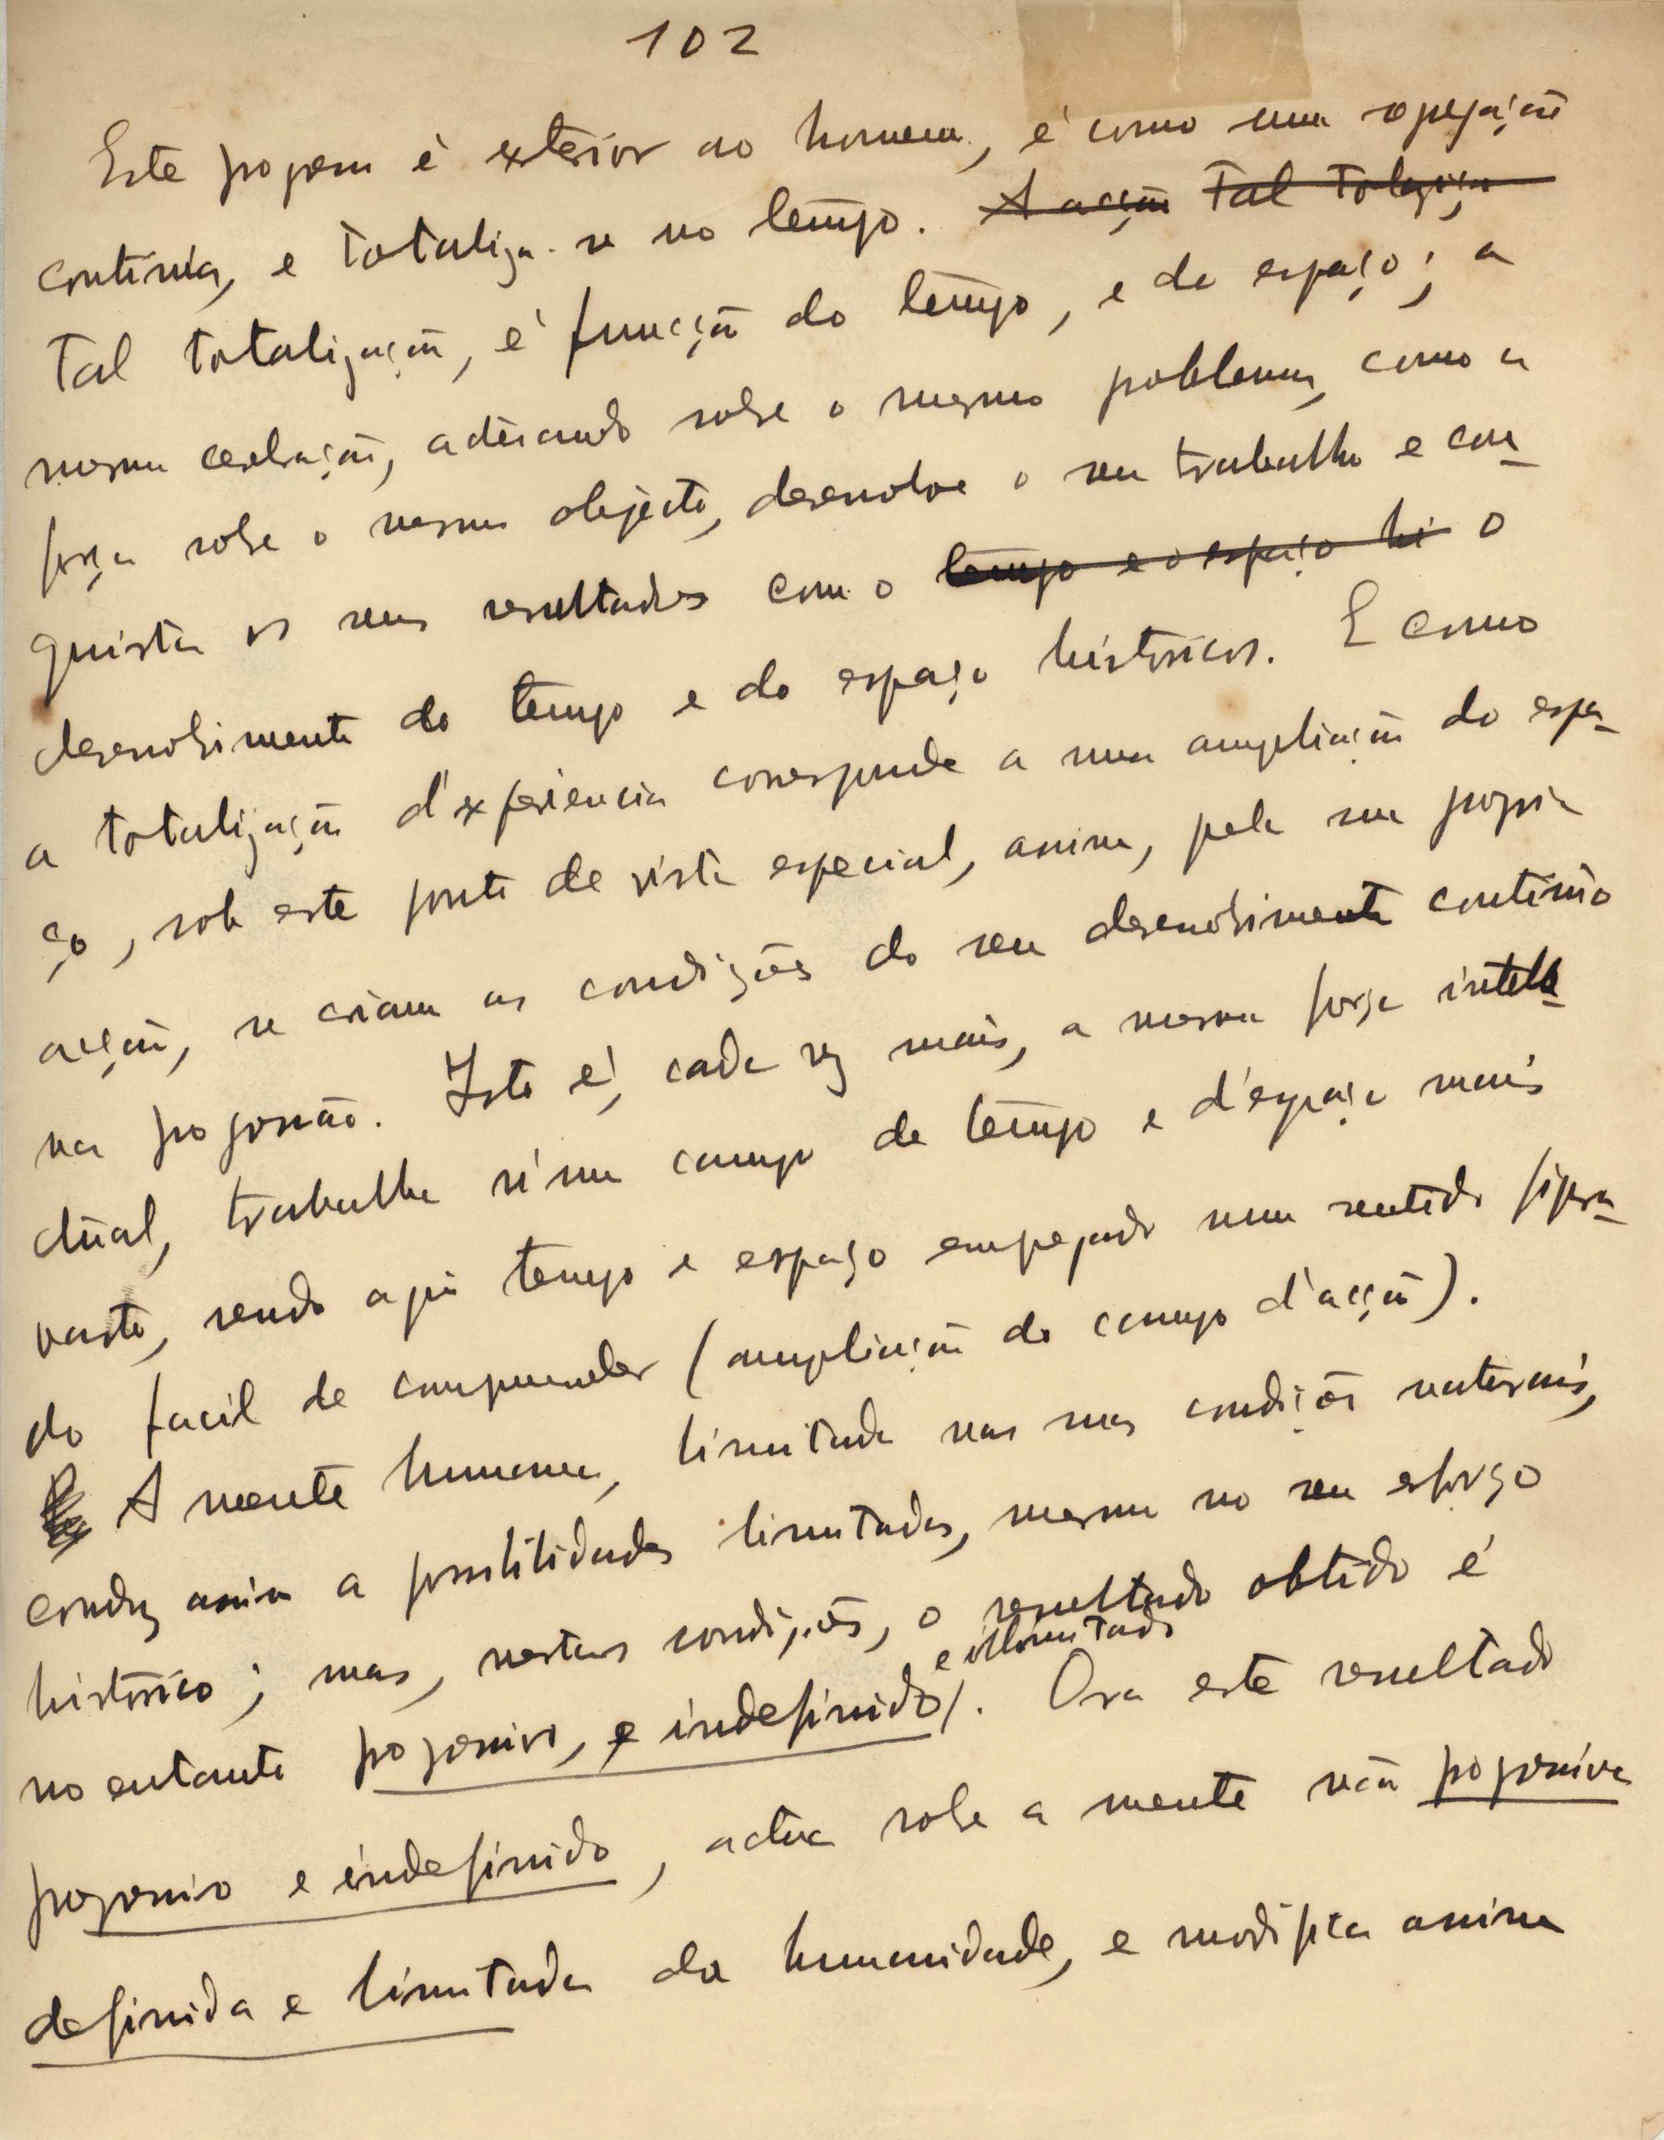 102
Este progresso é exterior ao homem, é como uma operação
continúa, e totaliza-se no tempo. A acção Tal totaliza
Tal totalização, é funcção do tempo, e do espaço; a
mesma cerebração, actuando sobre o mesmo problema, como a
força sobre o mesmo objecto, desenvolve o seu trabalho e con-
quista os seus resultados com o tempo e o espaço hi o
desenvolvimento do tempo e do espaço históricos. E como
a totalização d'experiencia corresponde a uma ampliação do espa-
ço, sob este ponto de vista especial, assim, pela sua propria
acção, se criam as condições do seu desenvolvimento continúo
na progressão. Isto é, cada vez mais, a mesma força intele-
ctúal, trabalha n'um campo de tempo e d'espaço mais
vasto, sendo aqui tempo e espaço empregado num sentido figura-
do facil de comprehender (ampliação do campo d'acção).
A mente humana, limitada nas suas condições naturais,
conduz assim a possibilidades limitadas, mesmo no seu esforço
histórico; mas, nestas condições, o resultado obtido é
e illimitado
no entanto progressivo, e indefinido/. Ora este resultado
progressivo e indefinido, actua sobre a mente não progressiva
definida e limitada da humanidade, e modifica assim